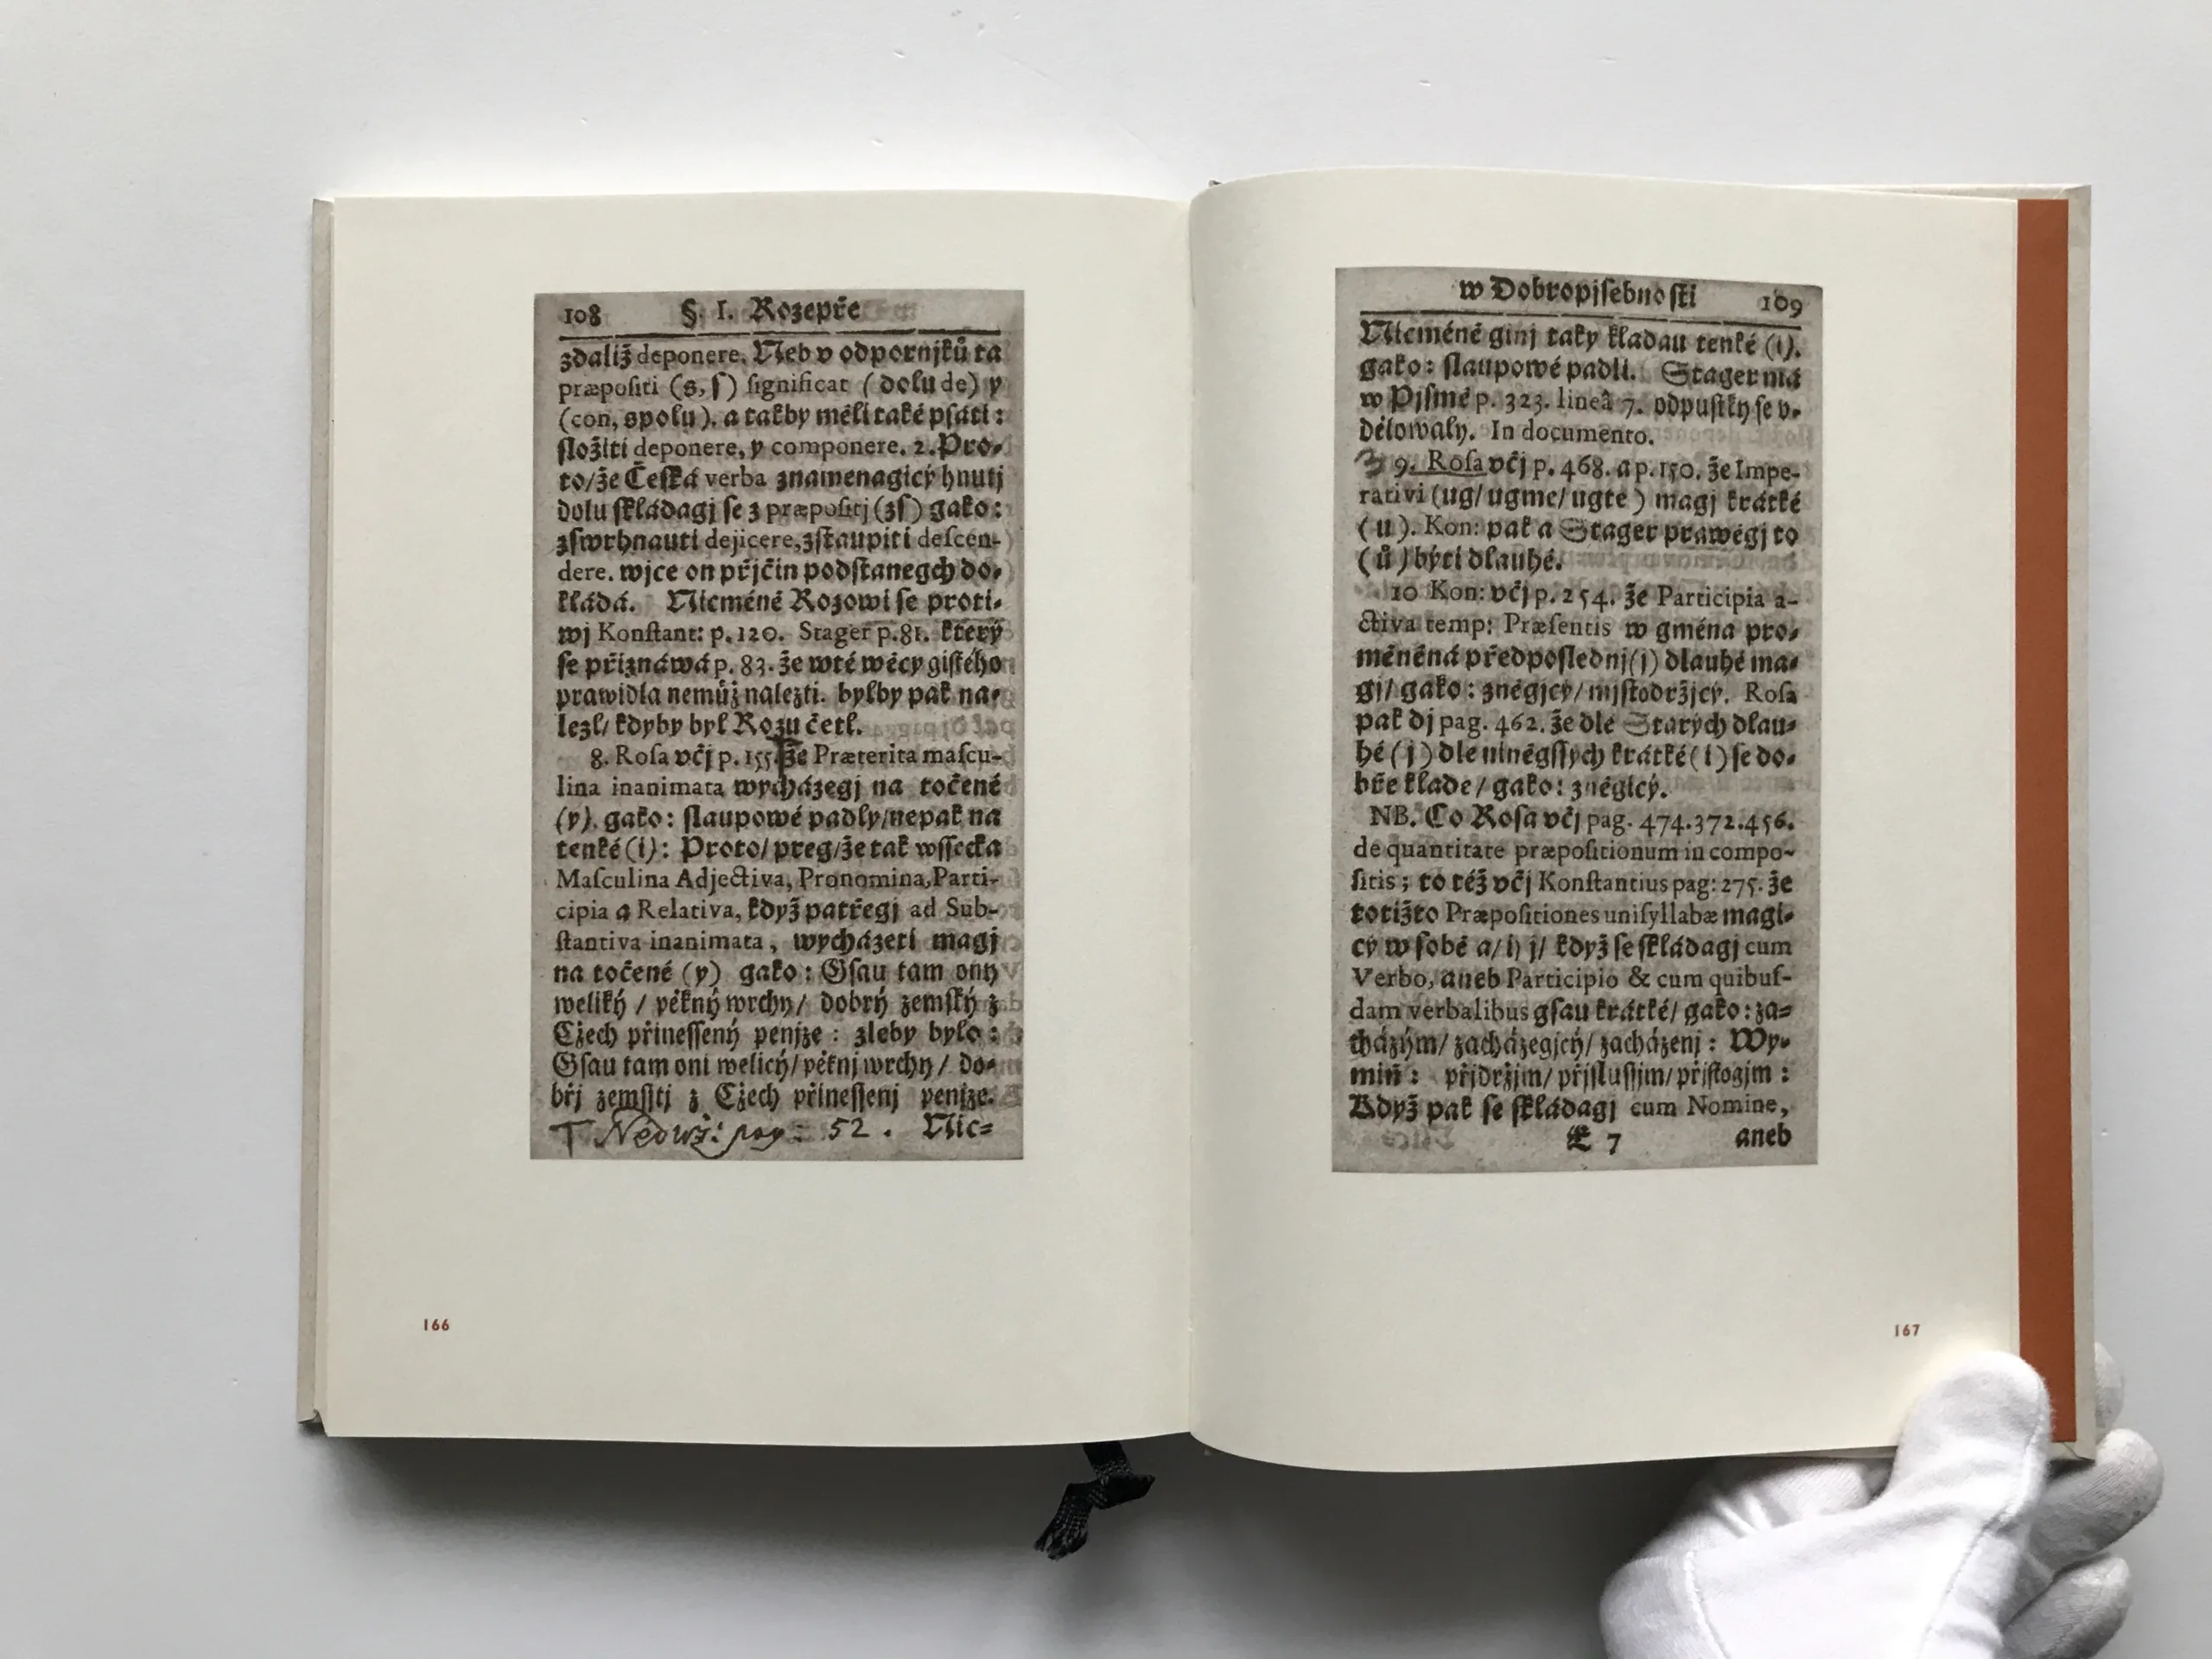 108 §. I. Rozepře
zdaliž deponere. Neb v odpornjků ta
præpoſiti (s, ſ) ſignificat (dolu de) y
(con, spolu). a takby měli také pſáti:
ſložiti deponere, y componere. 2. Pro-
to/že Čeſká verba znamenagicý hnutj
dolu ſkládagj ſe z præpoſitj (zſ) gako:
zſwrhnauti dejicere, zſtaupiti deſcen-
dere. wjce on přjčin podſtanegch do-
kládá. Nicméně Rozowi ſe proti-
wj Konſtant: p. 120. Stager p. 81. který
ſe přiznáwá p. 83. že wté wěcy giſtého
prawidla nemůž nalezti. bylby pak na-
lezl/ kdyby byl Rozu četl.
8. Roſa včj p. 155. že Præterita maſcu-
lina inanimata wycházegj na točené
(y). gako: ſlaupowé padly/nepak na
tenké (i): Proto/ preg/že tak wſſecka
Maſculina Adjectiva, Pronomina, Parti-
cipia a Relativa, když patřegj ad Sub-
ſtantiva inanimata, wycházeti magj
na točené (y) gako: Gſau tam ony
weliký / pěkný wrchy/ dobrý zemſký z
Cžech přineſſený penjze: zleby bylo:
Gſau tam oni welicý/ pěknj wrchy/ do-
břj zemſſtj z Cžech přineſſenj penjze.
T Nedwz: pag: 52. Nic=
w Dobropjſebnoſti 109
Nicméně ginj taky kladau tenké (i).
gako: ſlaupowé padli. Stager má
w Pjſmě p. 323. lineâ 7. odpuſtky ſe v-
dělowaly. In documento.
9. Roſa včj p. 468. a p. 150. že Impe-
rativi (ug/ ugme/ ugte) magj krátké
(u). Kon: pak a Stager prawěgj to
(ů) býti dlauhé.
10 Kon: včj p. 254. že Participia a-
ctiva temp: Præſentis w gména pro-
měněná předpoſlednj (j) dlauhé ma-
gj/ gako: zněgjcý/ mjſtodržjcý. Roſa
pak dj pag. 462. že dle Starých dlau-
hé (j) dle niněgſſych krátké (i) ſe do-
bře klade/ gako: zněgicý.
NB. Co Roſa včj pag. 474. 372. 456.
de quantitate præpoſitionum in compo-
ſitis; to též včj Konſtantius pag: 275. že
totižto Præpoſitiones uniſyllabæ magi-
cý w ſobě a/ i) j/ když ſe ſkládagj cum
Verbo, aneb Participio & cum quibuſ-
dam verbalibus gſau krátké/ gako: za=
cházým/ zacházegjcý/ zacházenj: Wy-
miň: přjdržjm/ přjſluſſjm/ přjſtogjm:
Když pak ſe ſkládagj cum Nomine,
E 7 aneb
166
167